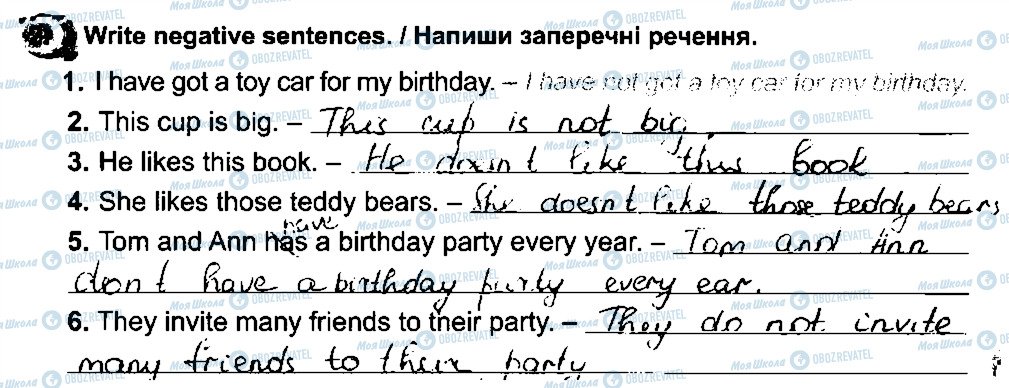 Write negative sentences. / Напиши заперечні речення.
1. I have got a toy car for my birthday. – I have not got a toy car for my birthday.
2. This cup is big. – This cup is not big.
3. He likes this book. – He doesn't like this book
4. She likes those teddy bears. – She doesn't like those teddy bears
have
5. Tom and Ann has a birthday party every year. – Tom and Ann
don't have a birthday party every ear.
6. They invite many friends to their party. – They do not invite
many friends to their party